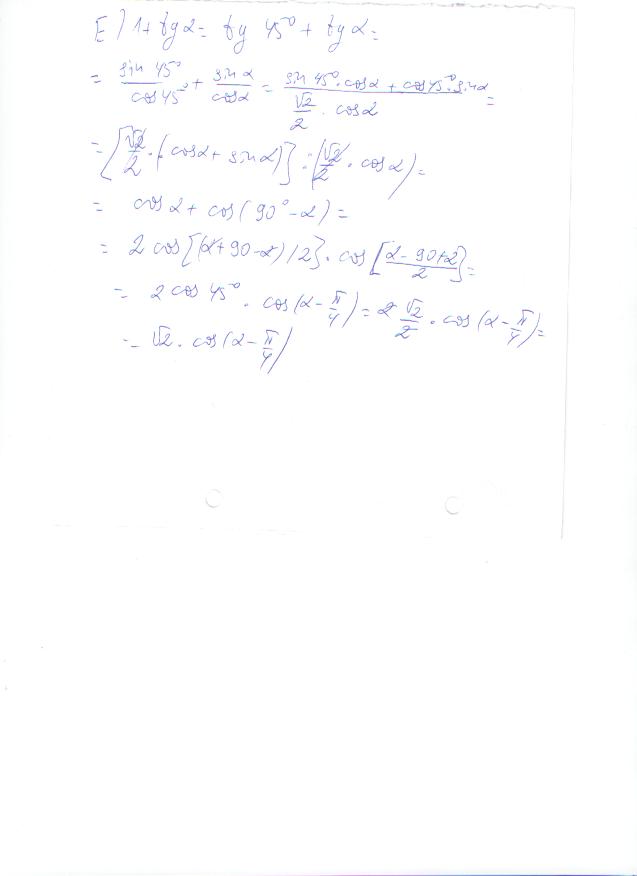 E) 1+tgα= tg 45°+ tgα=
= sin 45°/cos 45° + sin α/cosα = (sin 45°·cosα + cos 45°·sinα)/(√2/2 · cosα) =
= [√2/2 · (cosα + sinα)] : (√2/2 · cosα) =
= cosα + cos(90°-α) =
= 2 cos[(α+90-α)/2]· cos [(α-90+α)/2] =
= 2 cos 45° · cos(α-π/4) = 2 √2/2 · cos(α-π/4) =
= √2 · cos(α-π/4)